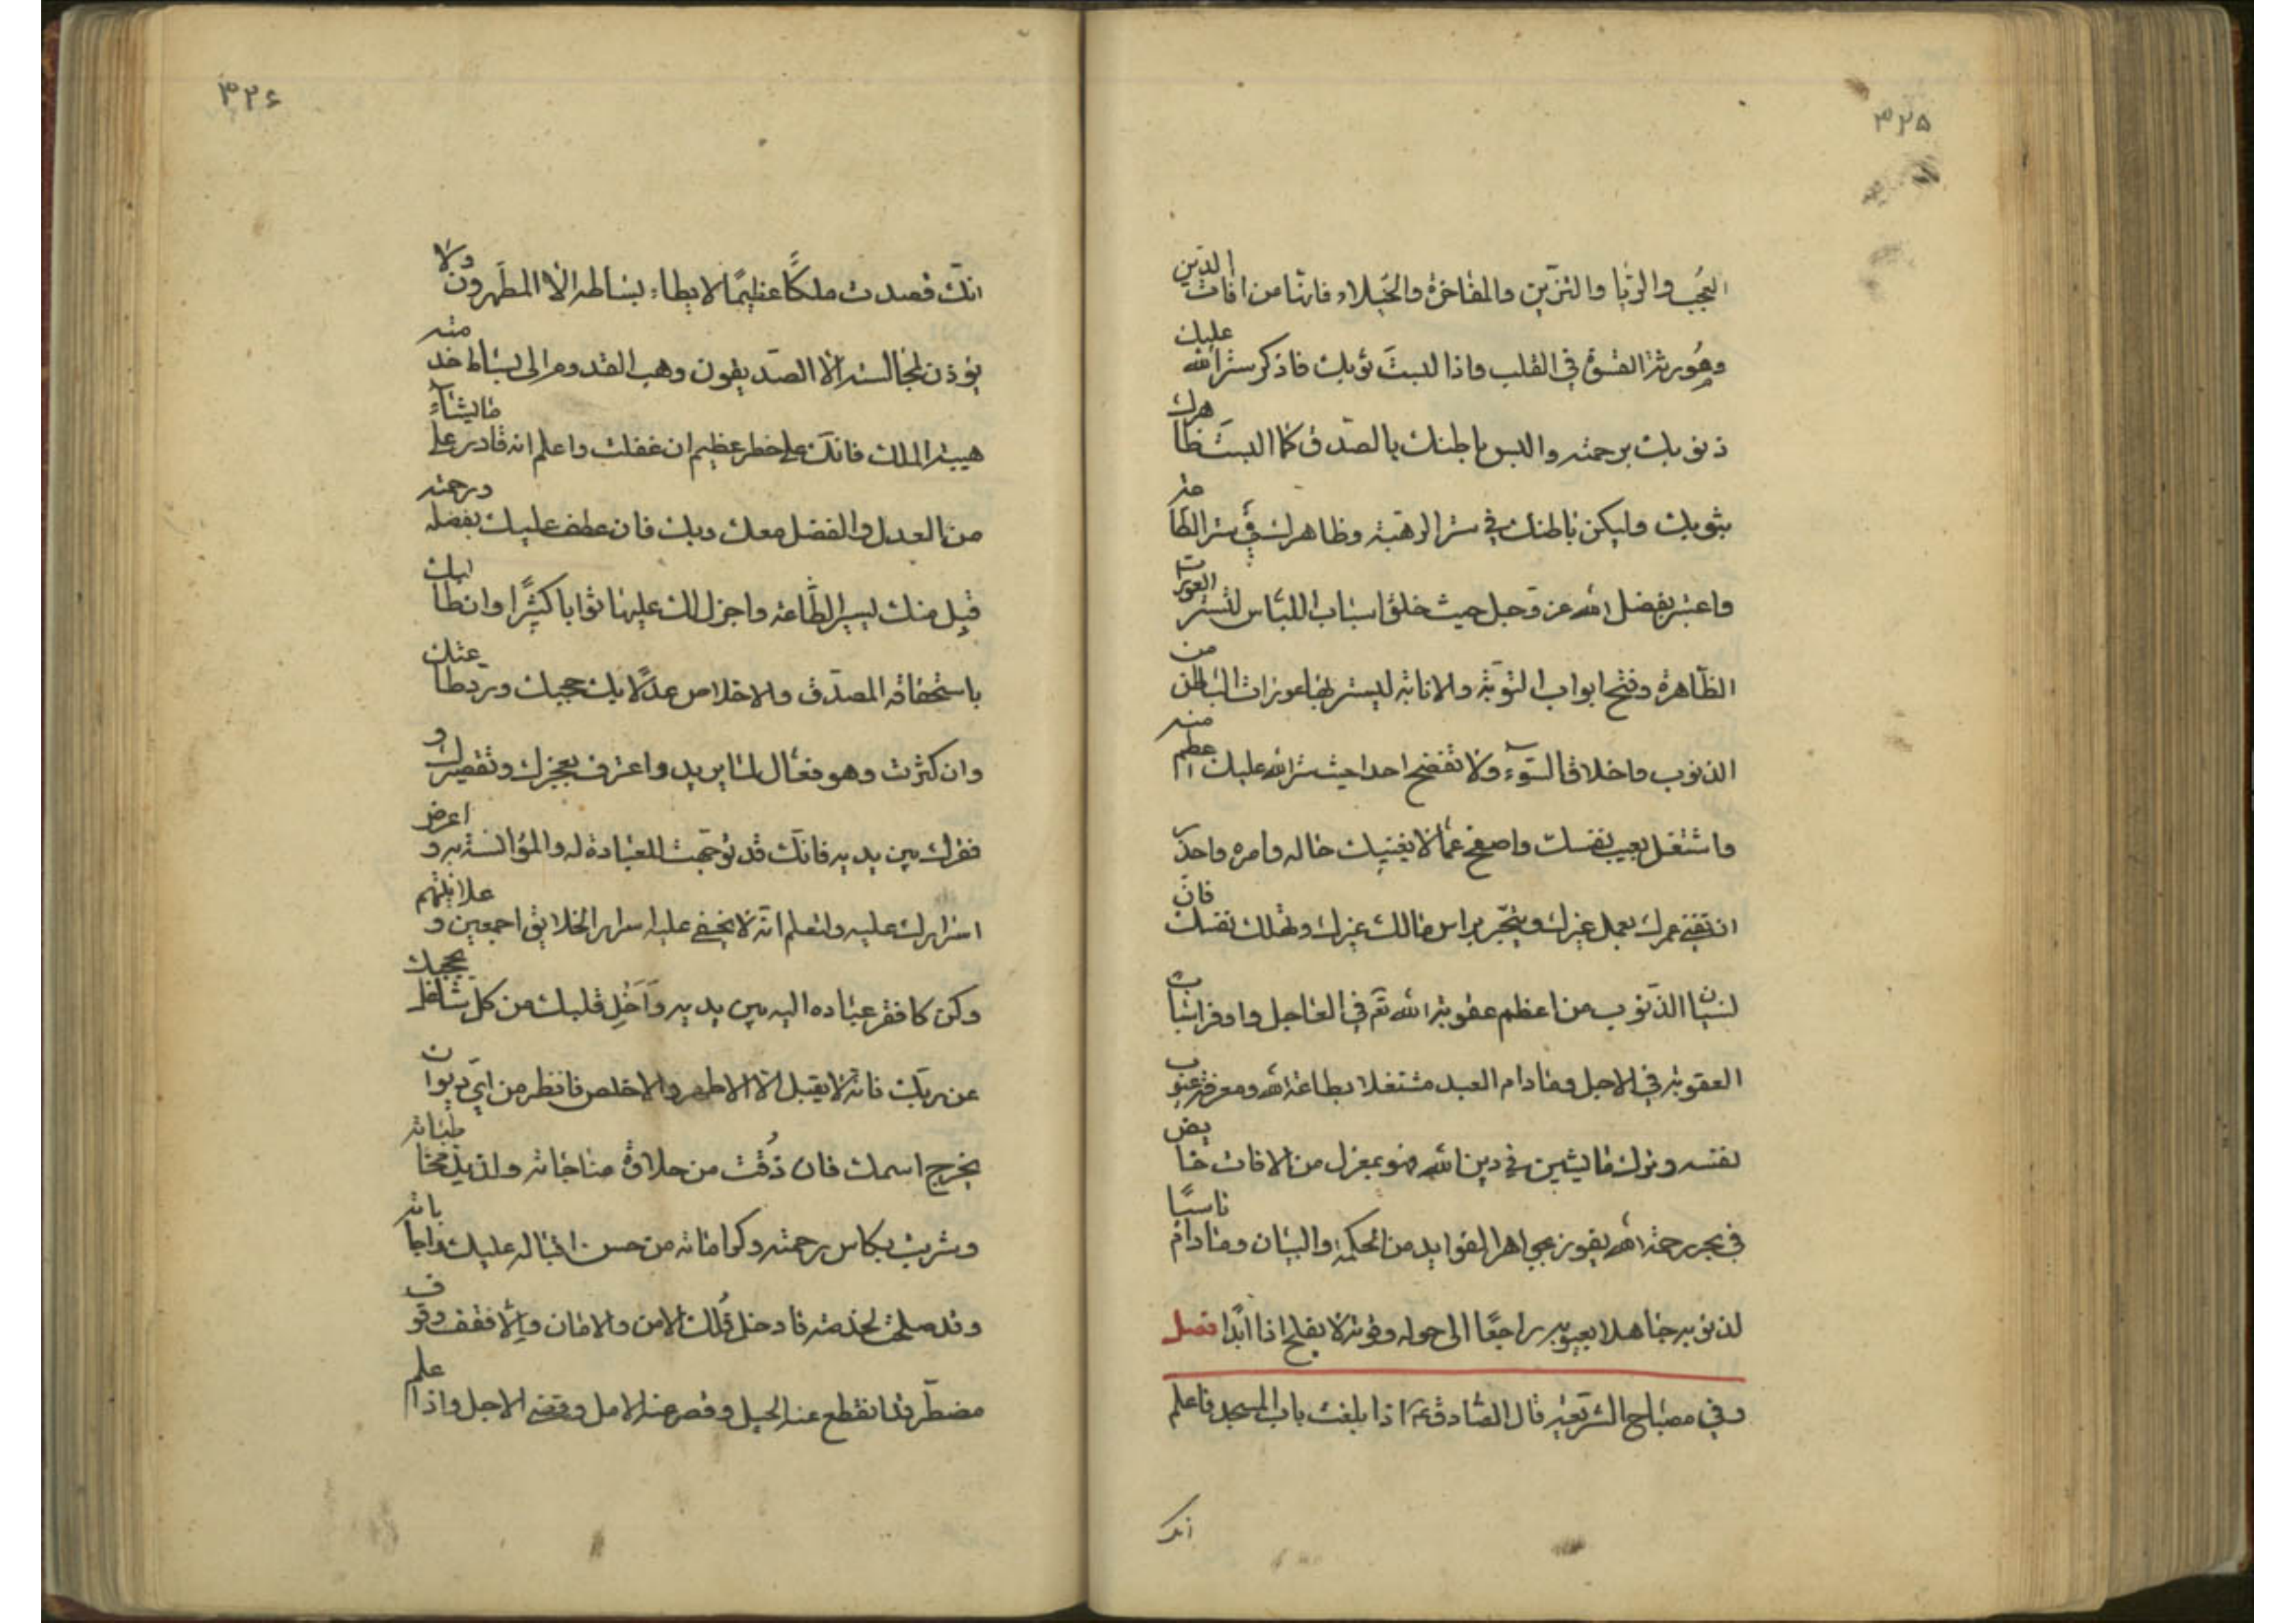 ۳۲۵
العجب والريا والتزين والمفاخرة والخيلاء فانها من افات الدين
وهو يرثه القسوة في القلب واذا لبست ثوبك فاذكر ستر الله عليك
ذنوبك برحمته والبس باطنك بالصدق كما البست ظاهرك
بثوبك وليكن باطنك في ستر الرهبة وظاهرك في ستر الطاعة
واعتبر بفضل الله عز وجل حيث خلق اسباب اللباس لتستر العورات
الظاهرة وفتح ابواب التوبة والانابة ليستر بها عورات الباطن من
الذنوب واخلاق السوء ولا تفضح احدا حيث ستر الله عليك اعظم منه
واشتغل بعيب نفسك واصفح عما لا يعنيك حاله وامره واحذر
ان تفنى عمرك بعمل غيرك ويتجر براس مالك غيرك وتهلك نفسك فان
نسيان الذنوب من اعظم عقوبة الله تع في العاجل واوفر اسباب
العقوبة في الاجل ومادام العبد مشتغلا بطاعة الله ومعرفة عيوب
نفسه وترك ما يشين في دين الله فهو بمعزل من الافات خايض
في بحر رحمة الله يفوز بجواهر الفوايد من الحكمة والبيان ومادام ناسيًا
لذنوبه جاهلا بعيوبه راجعًا الى حوله وقوته لا يفلح اذا ابدًا فصل
وفي مصباح الشريعة قال الصادق ع اذا بلغت باب المسجد فاعلم
انك
۳۲۶
انك قصدت ملكًا عظيمًا لا يطاء بساطه الا المطهرون ولا
يؤذن لمجالسته الا الصديقون وهب القدوم الى بساط خدمته
هيبة الملك فانك على خطر عظيم ان غفلت واعلم انه قادر على ما يشاء
من العدل والفضل معك وبك فان عطف عليك بفضله ورحمته
قبل منك يسير الطاعة واجزل لك عليها ثوابا كثيرًا وان طالبك
باستحقاقه الصدق والاخلاص عدلًا بك حجبك ورد طاعتك
وان كثرت وهو فعال لما يريد واعترف بعجزك وتقصيرك و
فقرك بين يديه فانك قد توجهت للعبادة له والمؤانسة به و اعرض
اسرارك عليه ولتعلم انه لا يخفى عليه اسرار الخلايق اجمعين و علانيتهم
وكن كافقر عباده اليه بين يديه وَاَخْلِ قلبك من كل شاغل يحجبك
عن ربك فانه لا يقبل الا الاطهر والاخلص فانظر من اي ديوان
يخرج اسمك فان ذُقت من حلاوة مناجاته ولذيذ مخاطباته
وشربت بكاس رحمته وكراماته من حسن اقباله عليك واجاباته
وقد صلحت لخدمته فادخل فلك الامن والامان والا فقف وقوف
مضطر قد انقطع عنه الحيل وقصر عنه الامل وقضى الاجل واذا علم